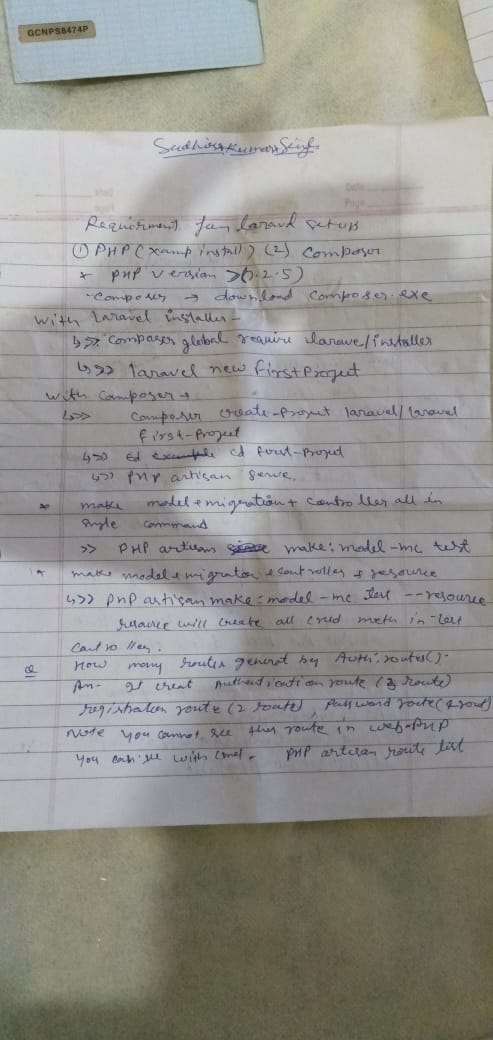 GCNPS8474P
Sudhir Kumar Singh
Date
Page
Requirment for laravel setup
① PHP (xamp install) (2) Composer
* PHP version >(7.2.5)
- Composer → download composer.exe
with Laravel installer -
↳>> composer global require laravel/installer
↳>> laravel new first Project
with composer →
↳>> composer create-project laravel/laravel
first-project
↳>> cd first-project
↳>> PHP artisan serve.
* make model + migration + controller all in
single command
>> PHP artisan make:model -mc test
* make model + migration + controller + resource
↳>> PHP artisan make:model -mc test --resource
resource will create all crud meth in test
controller.
Q How many routes generat by Auth::routes();
An- It creat Authentication route (3 route)
registration route (2 route), password route (4 rout)
Note you cannot see this route in web.PHP
you can see with cmd. PHP artisan route list